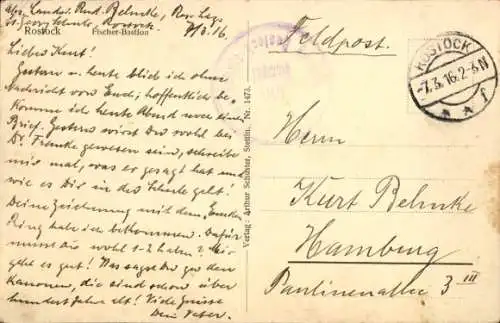 Abs. Landst. Rud. Behncke, Res. Laz.
St. Georgschule, Rostock. 7/3.16.
Rostock Fischer-Bastion
Liebes Kurt!
Gestern u. heute blieb ich ohne
Nachricht von Euch; hoffentlich be-
komme ich heute Abend einen
Brief. Gestern wirst Du wohl bei
Dr. gewesen sein, schreibe
mir mal, was er gesagt hat und
wie es Dir in der Schule geht!
Deine Zeichnung mit dem
Ring habe ich bekommen. Dafür
musst Du wohl 1-2 haben? Mir
geht es gut! Was sagst Du zu den
Kanonen, die sind schon über
hundert Jahre alt! Viele Grüsse
Dein Vater.
Verlag: Arthur Schuster, Stettin. Nr. 1473.
Feldpost.
ROSTOCK
-7.3.16.2-3N
* * f
Herrn
Kurt Behncke
Hamburg
Paulinenallee 3 III